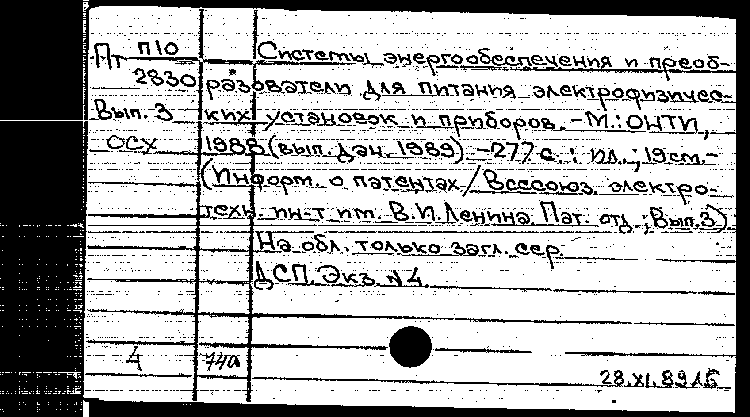 Пт П10 Системы энергообеспечения и преоб-
2830 разователи для питания электрофизичес-
Вып. 3 ких установок и приборов. - М.: ОНТИ,
ОСХ 1988 (вып. дан. 1989) - 277 с. : ил. ; 19 см. -
(Информ. о патентах / Всесоюз. электро-
техн. ин-т им. В.И. Ленина. Пат. отд. ; Вып. 3)
На обл. только загл. сер.
ДСП. Экз. N 4.
4 
28.XI.89